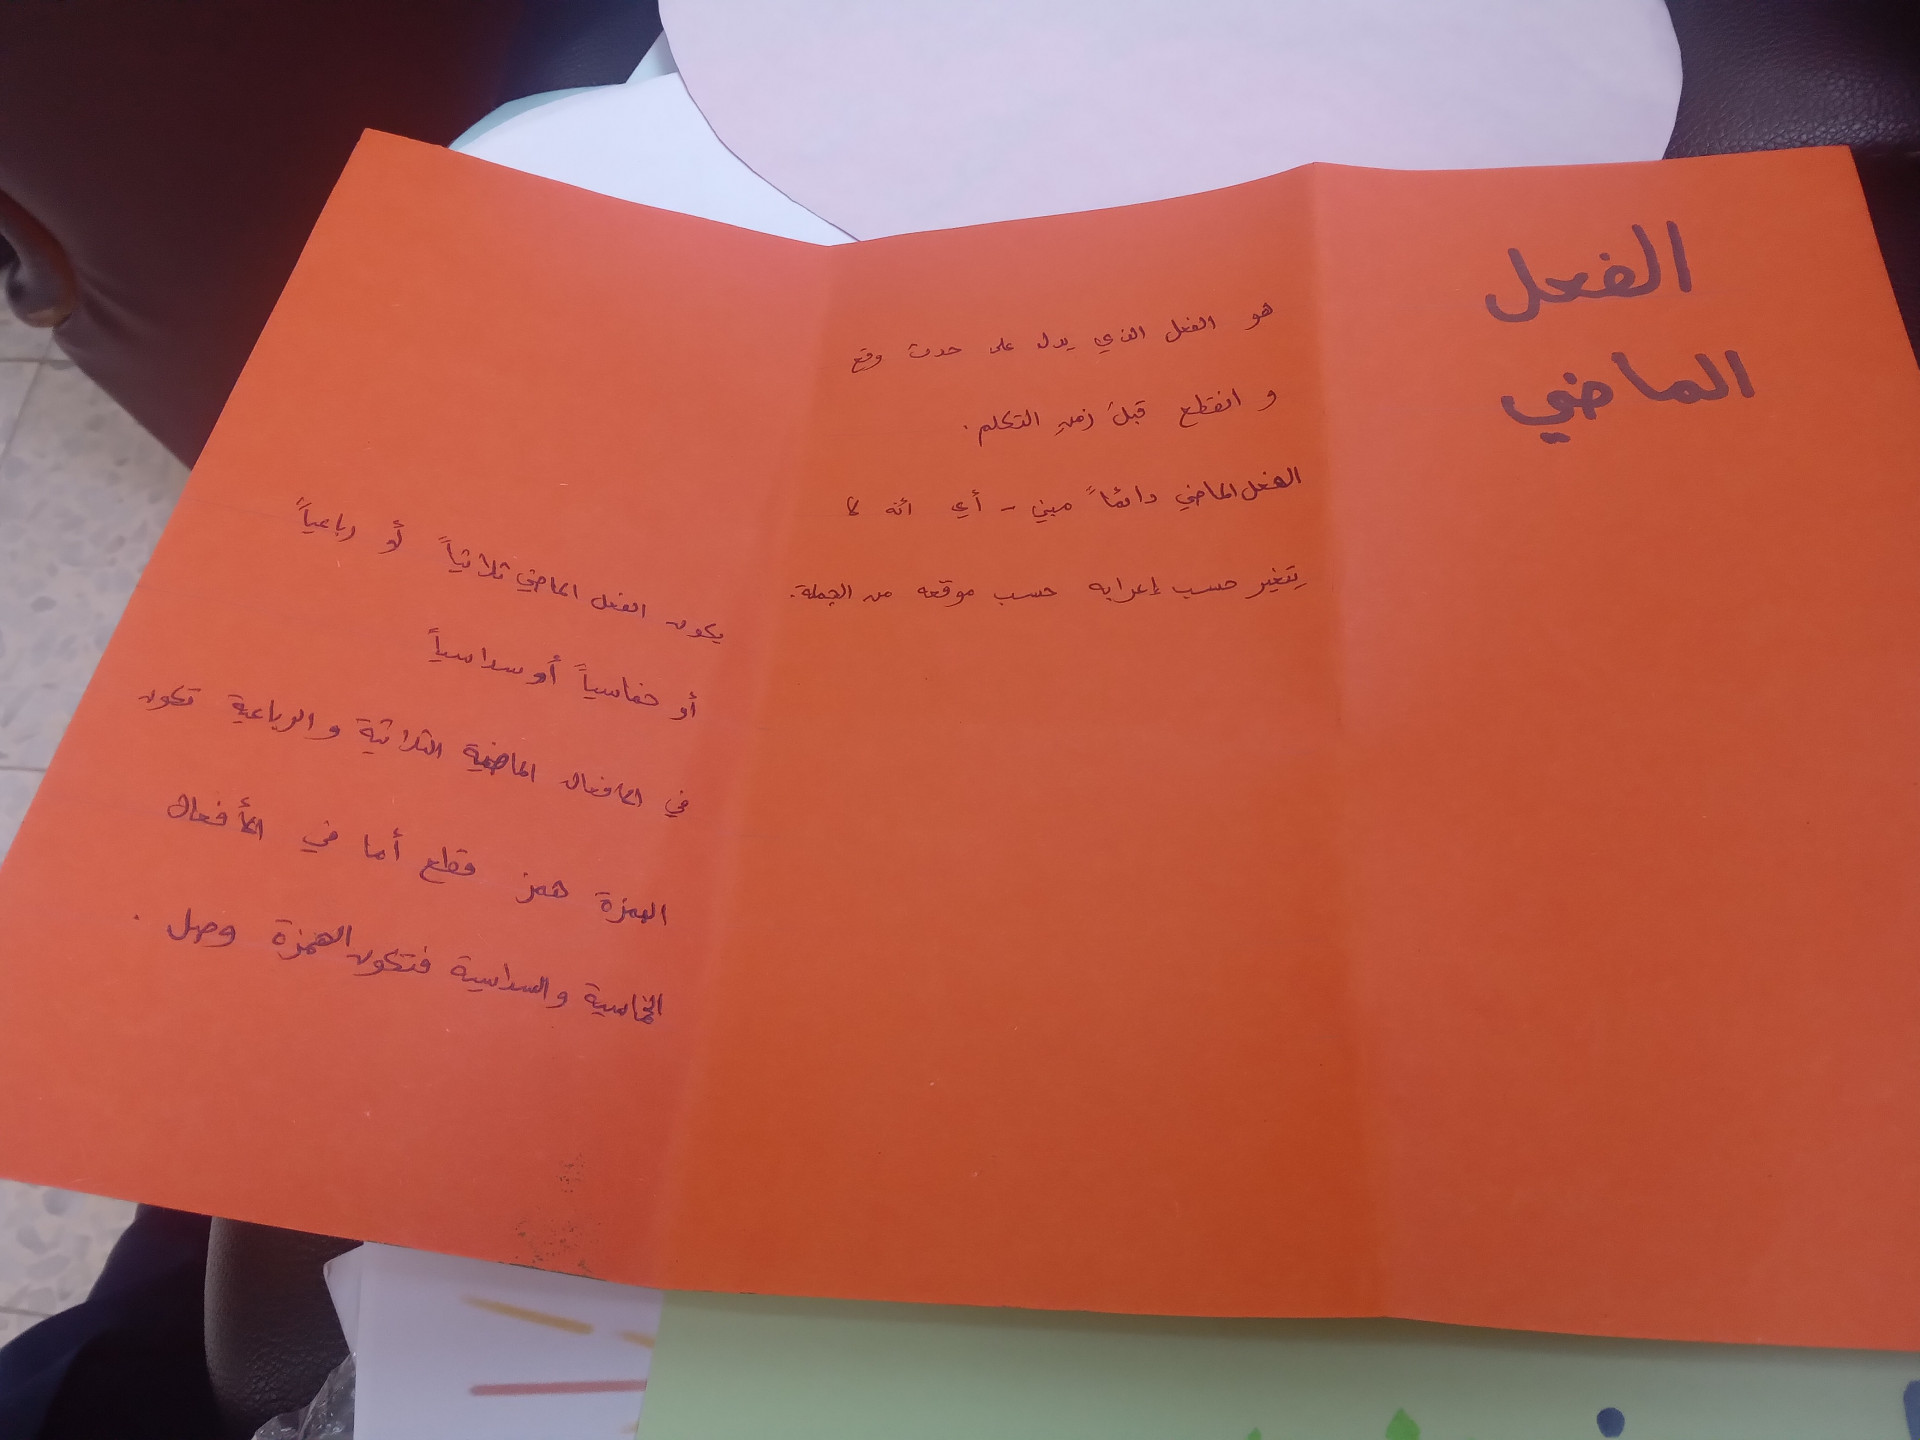 الفعل
الماضي
هو الفعل الذي يدل على حدث وقع
و انقطع قبل زمن التكلم .
الفعل الماضي دائمًا مبني - أي أنه لا
يتغير حسب إعرابه حسب موقعه من الجملة.
يكون الفعل الماضي ثلاثياً أو رباعياً
أو خماسياً أو سداسياً
في الافعال الماضية الثلاثية و الرباعية تكون
الهمزة همز قطع أما في الأفعال
الخماسية و السداسية فتكون الهمزة وصل .